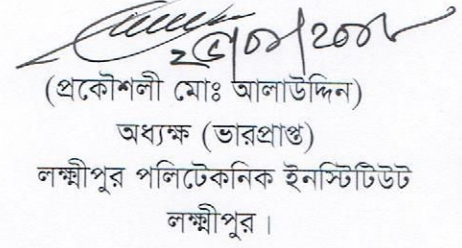 (প্রকৌশলী মোঃ আলাউদ্দিন)
অধ্যক্ষ (ভারপ্রাপ্ত)
লক্ষ্মীপুর পলিটেকনিক ইনস্টিটিউট
লক্ষ্মীপুর।